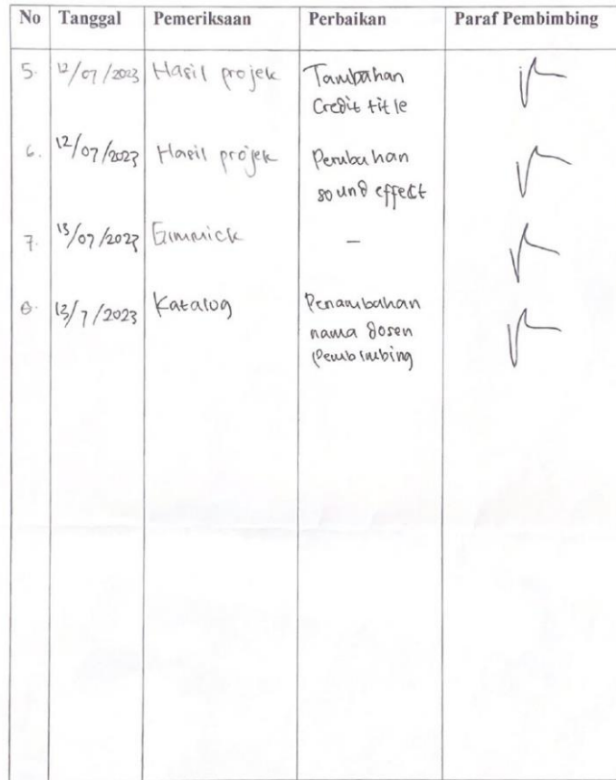 No Tanggal Pemeriksaan Perbaikan Paraf Pembimbing
5. 12/07/2023 Hasil projek Tambahan
Credit title
6. 12/07/2023 Hasil projek Perubahan
sound effect
7. 13/07/2023 Gimmick –
8. 13/7/2023 Katalog Penambahan
nama dosen
Pembimbing